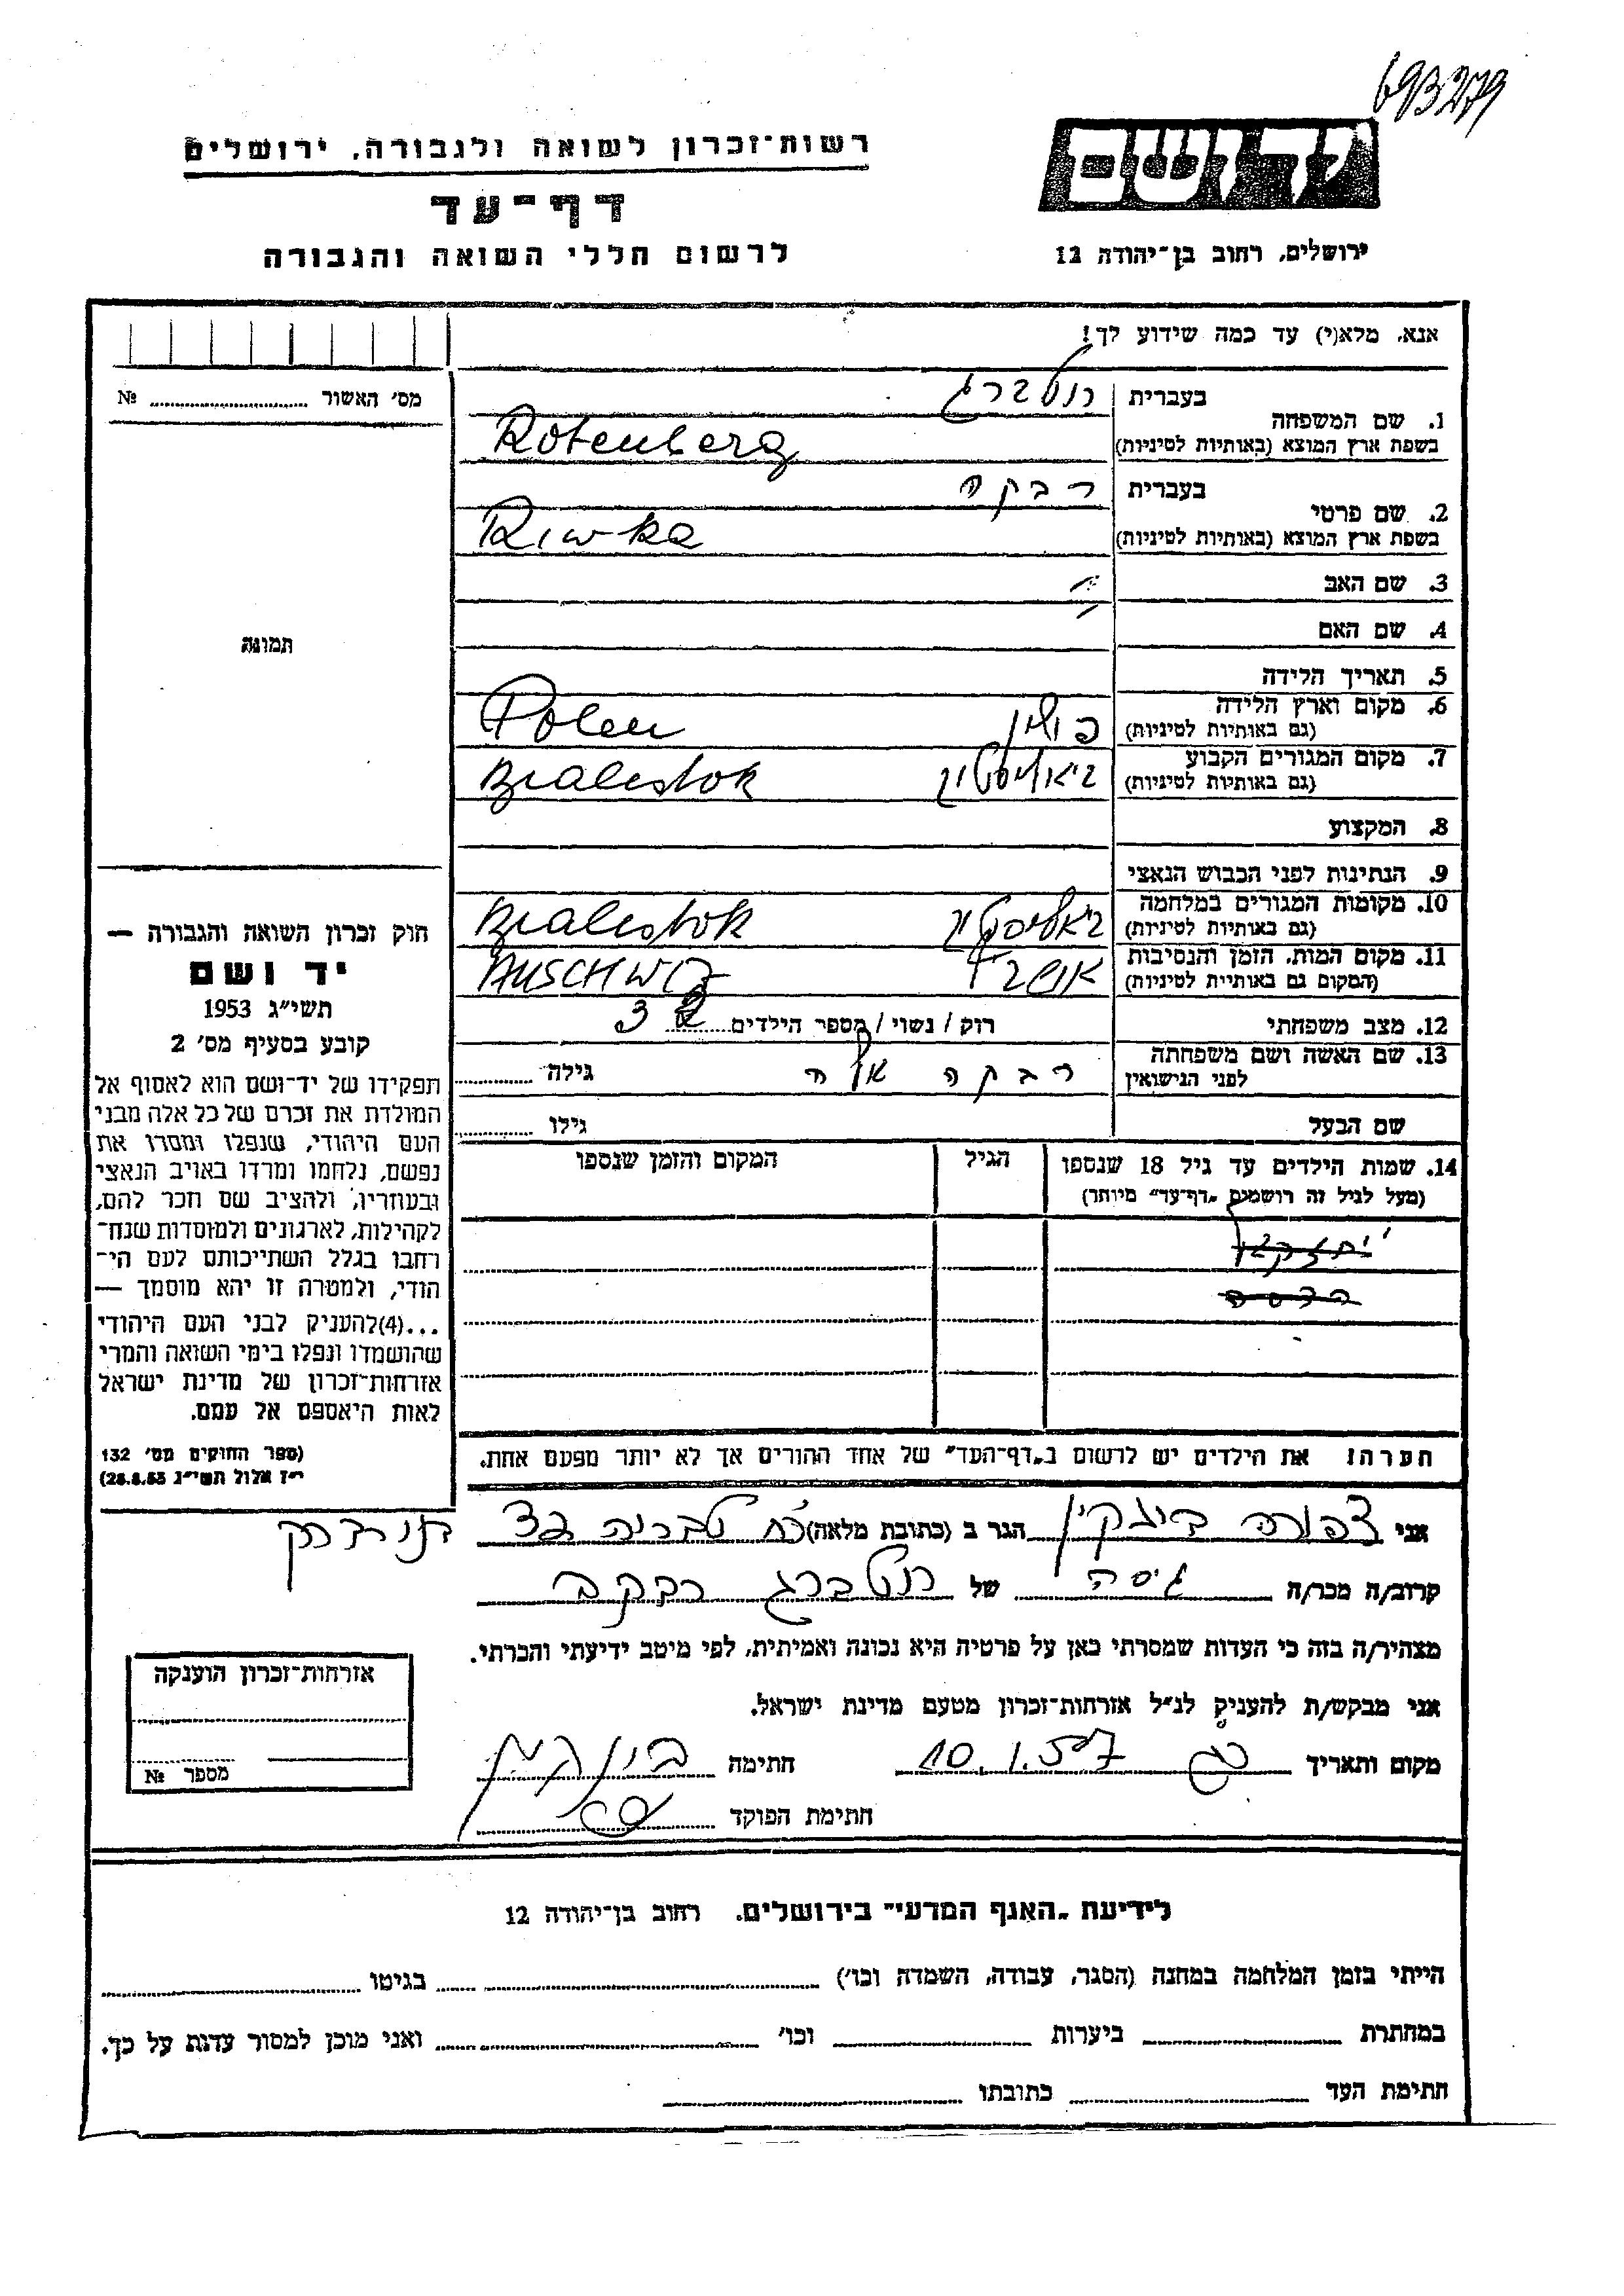 693279
רשות־זכרון לשואה ולגבורה, ירושלים
דף־עד
לרשום חללי השואה והגבורה
יד ושם
ירושלים, רחוב בן־יהודה 12
אנא, מלא(י) עד כמה שידוע לך!
מס׳ האשור № 
בעברית רוטברג
1. שם המשפחה
בשפת ארץ המוצא (באותיות לטיניות) Rotenberg
בעברית רבקה
2. שם פרטי
בשפת ארץ המוצא (באותיות לטיניות) Riwka
3. שם האב
4. שם האם
תמונה
5. תאריך הלידה
6. מקום וארץ הלידה
(גם באותיות לטיניות) פולין Polen
7. מקום המגורים הקבוע
(גם באותיות לטיניות) ביאליסטוק Bialestok
8. המקצוע
9. הנתינות לפני הכבוש הנאצי
10. מקומות המגורים במלחמה
(גם באותיות לטיניות) ביאליסטוק Bialestok
11. מקום המות, הזמן והנסיבות
(המקום גם באותיית לטיניות) AUSCHWIZ
12. מצב משפחתי רוק / נשוי / מספר הילדים 3
13. שם האשה ושם משפחתה
לפני הנישואין רבקה גילה
שם הבעל גילו
14. שמות הילדים עד גיל 18 שנספו הגיל המקום והזמן שנספו
(מעל לגיל זה רושמים „דף־עד״ מיותר)
חוק זכרון השואה והגבורה —
יד ושם
תשי״ג 1953
קובע בסעיף מס׳ 2
תפקידו של יד־ושם הוא לאסוף אל
המולדת את זכרם של כל אלה מבני
העם היהודי, שנפלו ומסרו את
נפשם, נלחמו ומרדו באויב הנאצי
ובעוזריו, ולהציב שם וזכר להם,
לקהילות, לארגונים ולמוסדות שנח־
רחבו בגלל השתייכותם לעם הי־
הודי, ולמטרה זו יהא מוסמך —
...(4)להעניק לבני העם היהודי
שהושמדו ונפלו בימי השואה והמרי
אזרחות־זכרון של מדינת ישראל
לאות היאספם אל עמם.
(ספר החוקים מס׳ 132
י״ז אלול תשי״ג 28.8.53)
הערה: את הילדים יש לרשום ב„דף־העד״ של אחד ההורים אך לא יותר מפעם אחת.
אני צפורה הגר ב (כתובת מלאה) טבריה
קרוב/ה מכר/ה גיסה של רוטברג רבקה
מצהיר/ה בזה כי העדות שמסרתי כאן על פרטיה היא נכונה ואמיתית, לפי מיטב ידיעתי והכרתי.
אני מבקש/ת להעניק לנ״ל אזרחות־זכרון מטעם מדינת ישראל.
מקום ותאריך 10.1.57 חתימה
חתימת הפוקד
אזרחות־זכרון הוענקה
מספר №
לידיעת „האגף המדעי״ בירושלים. רחוב בן־יהודה 12
הייתי בזמן המלחמה במחנה (הסגר, עבודה, השמדה וכו׳) בגיטו
במחתרת ביערות וכו׳ ואני מוכן למסור עדות על כך.
חתימת העד כתובתו